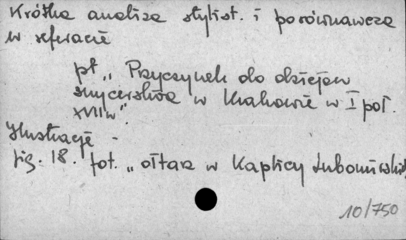 Krótka analiza stylist. i porównawcza
w referacie
pt „Przyczynek do dziejów
snycerstwa w Krakowie w I poł.
XVII w".
Ilustracje -
fig. 18. fot. „ołtarz w Kaplicy Lubomirskich
10/750